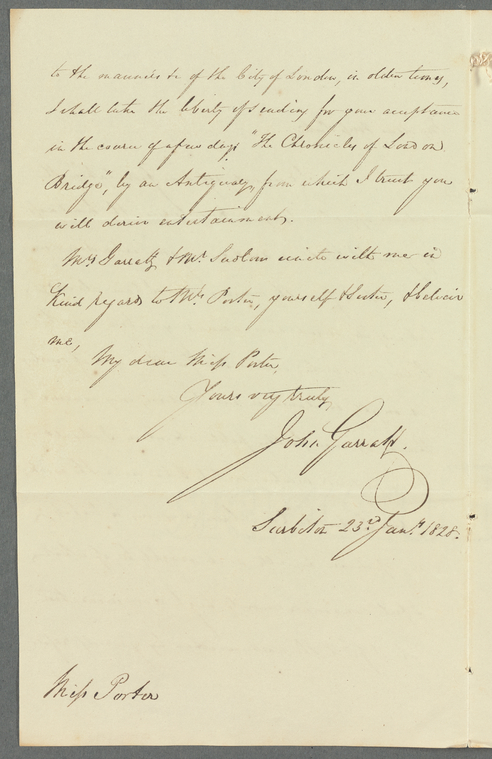 to the manners &c of the City of London, in olden times,
I shall take the liberty of sending for your acceptance
in the course of a few days "The Chronicles of London
Bridge", by an Antiquary, from which I trust you
will derive entertainment.
Mrs Garratt, & Mr. unite with me in
Kind regards to Mrs Porter, yourself & Sister, & believe
me,
My dear Miss Porter,
Yours very truly,
John Garratt.
Surbiton 23d. Jany. 1828.
Miss Porter